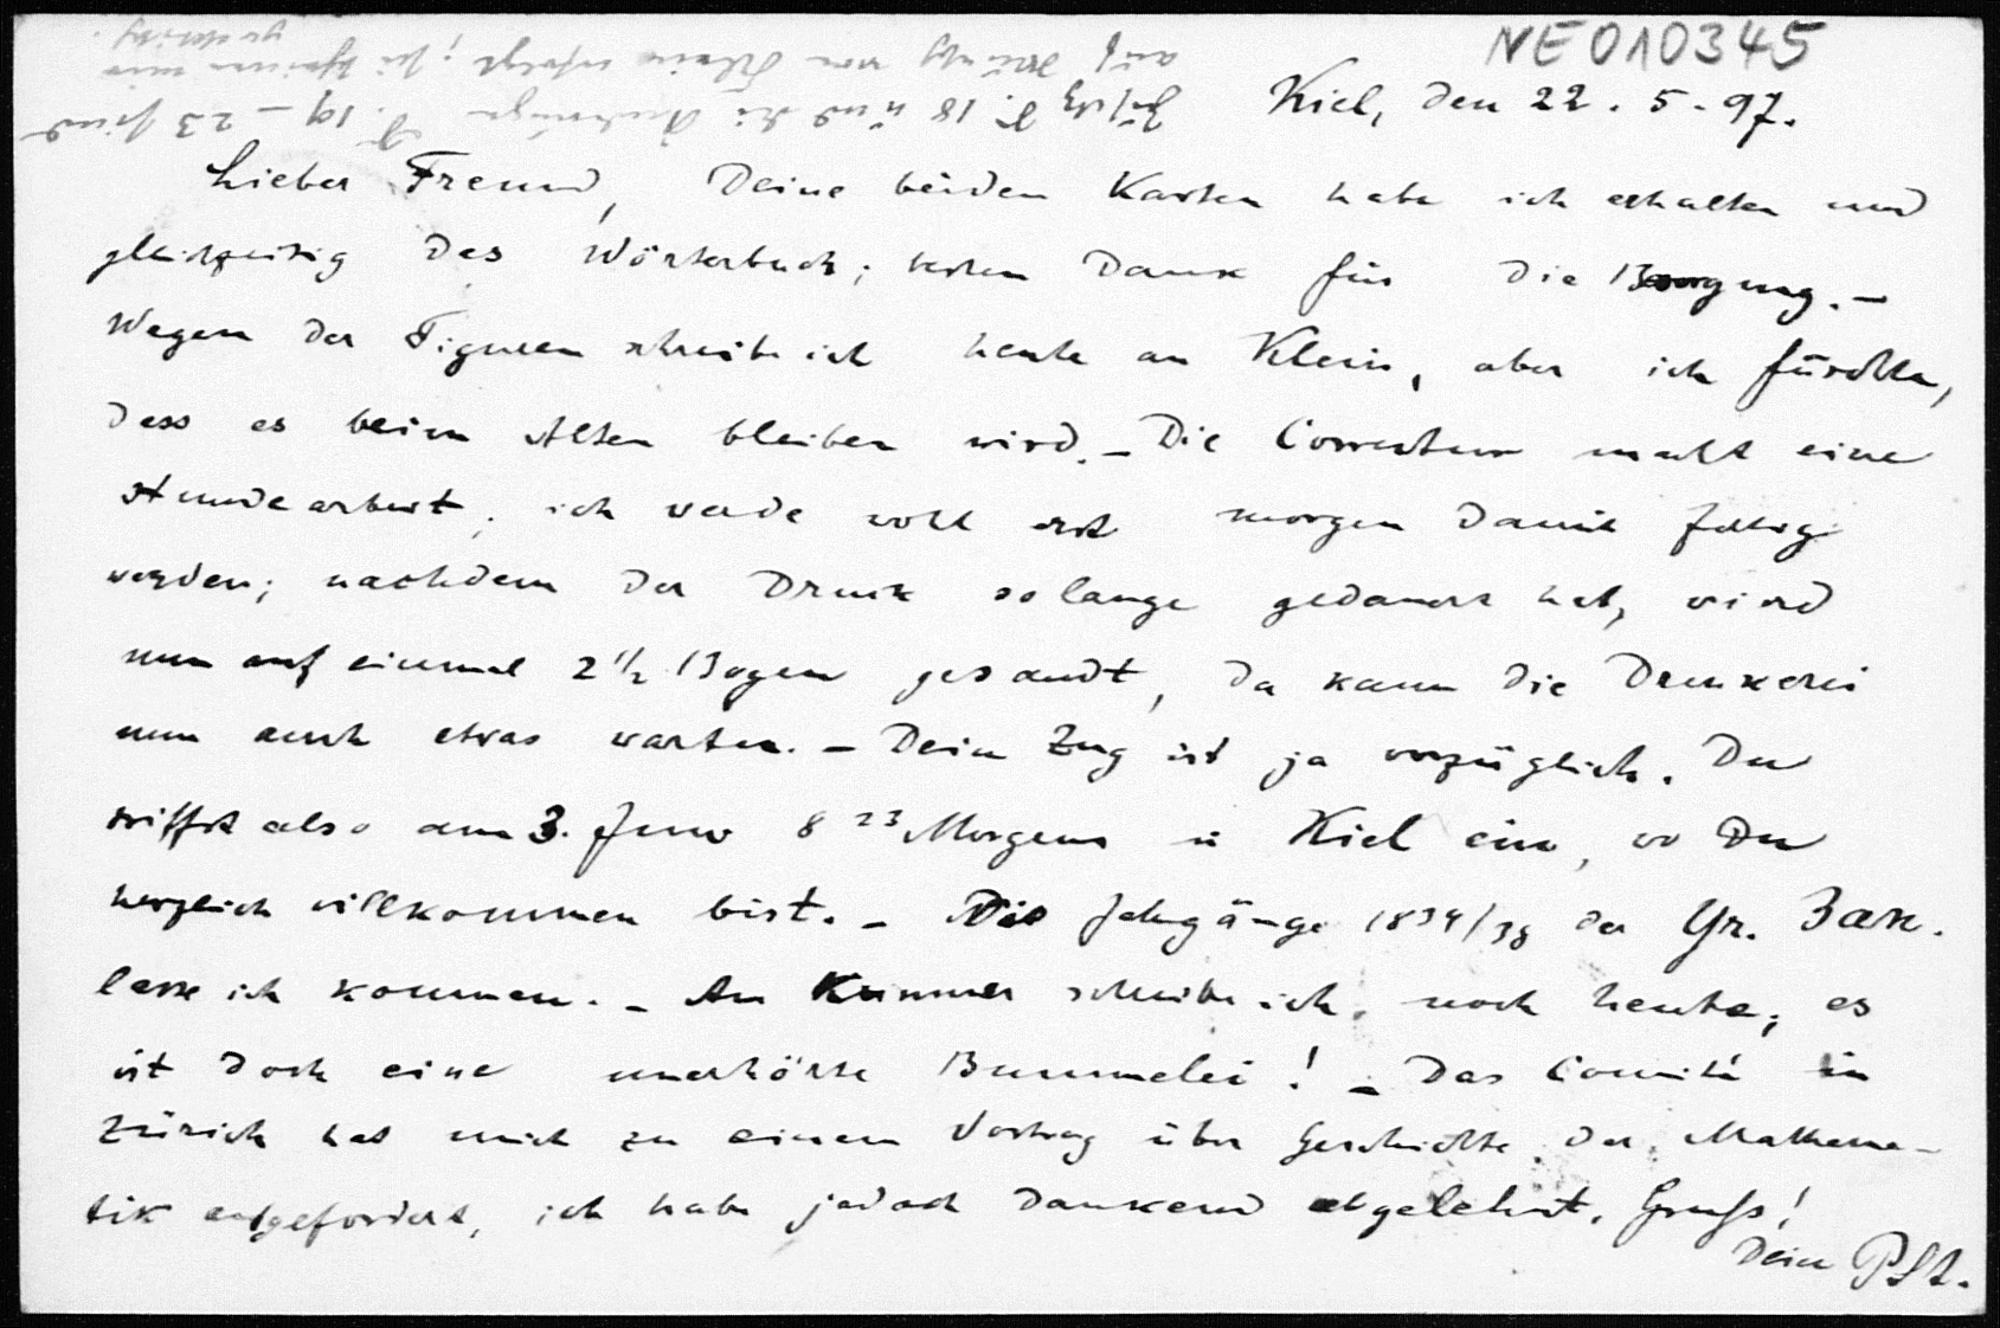 NE010345
Kiel, den 22. 5. 97.
Lieber Freund, Deine beiden Karten habe ich erhalten und
gleichzeitig das Wörterbuch; besten Dank für die Besorgung. –
Wegen der Figuren schreibe ich heute an Klein, aber ich fürchte,
dass es beim Alten bleiben wird. – Die Correctur macht eine
ich werde wohl erst morgen damit fertig
werden; nachdem der Druck so lange gedauert hat, wird
nun auf einmal 2 1/2 Bogen gesandt, da kann die Druckerei
nun auch etwas warten. – Dein Zug ist ja vorzüglich. Du
triffst also am 3. Juni 8 23 Morgens in Kiel ein, wo Du
herzlich willkommen bist. – Die Jahrgänge 1834/38 der
lasse ich kommen. – An Kummer schreibe ich noch heute; es
ist doch eine unerhörte Bummelei! – Das Comité in
Zürich hat mich zu einem Vortrag über Geschichte der Mathema-
tik aufgefordert, ich habe jedoch dankend abgelehnt. Gruß!
Dein PSt.